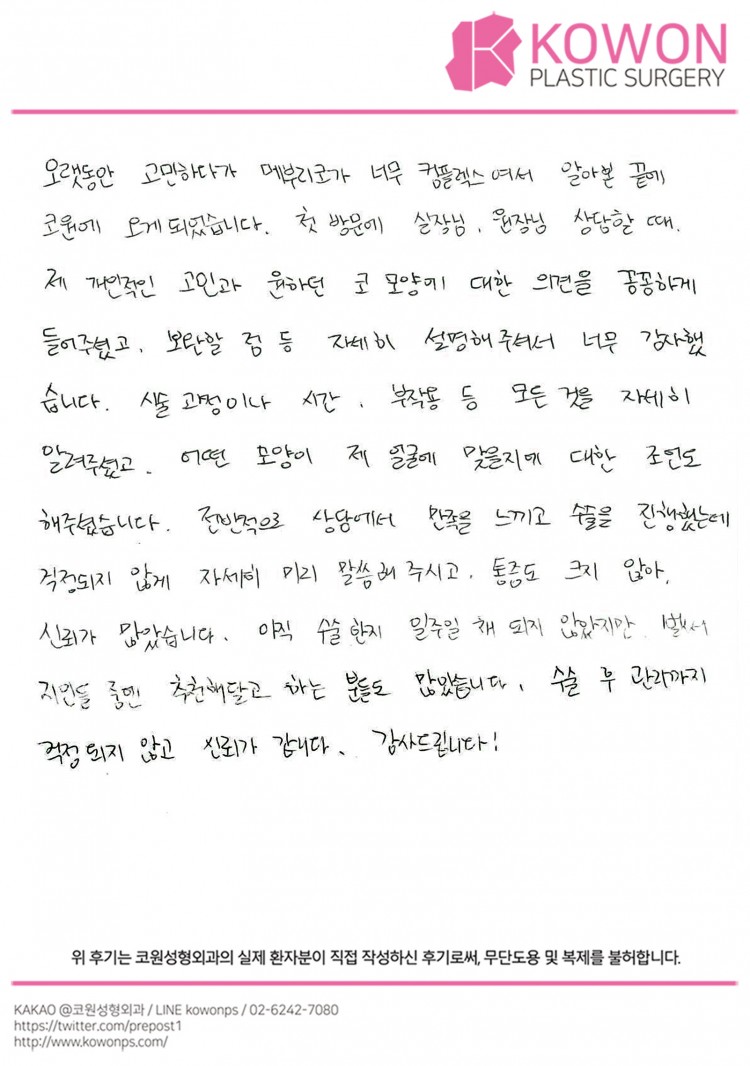 KOWON
PLASTIC SURGERY
오랫동안 고민하다가 메부리코가 너무 컴플렉스여서 알아본 끝에
코원에 오게 되었습니다. 첫 방문에 실장님, 원장님 상담할 때,
제 개인적인 고민과 원하던 코 모양에 대한 의견을 꼼꼼하게
들어주셨고, 보완할 점 등 자세히 설명해주셔서 너무 감사했
습니다. 시술 과정이나 시간, 부작용 등 모든 것을 자세히
알려주셨고, 어떤 모양이 제 얼굴에 맞을지에 대한 조언도
해주셨습니다. 전반적으로 상담에서 만족을 느끼고 수술을 진행했는데
걱정되지 않게 자세히 미리 말씀해 주시고, 통증도 크지 않아,
신뢰가 많았습니다. 아직 수술한지 일주일 채 되지 않았지만, 벌써
지인들 중엔 추천해달고 하는 분들도 많았습니다. 수술 후 관리까지
걱정되지 않고 신뢰가 갑니다. 감사드립니다!
위 후기는 코원성형외과의 실제 환자분이 직접 작성하신 후기로써, 무단도용 및 복제를 불허합니다.
KAKAO @코원성형외과 / LINE kowonps / 02-6242-7080
https://twitter.com/prepost1
http://www.kowonps.com/